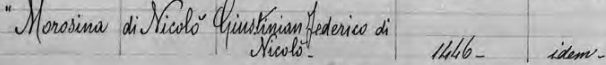 "Morosina di Nicolò Giustinian Federico di
Nicolò- 1446- idem-